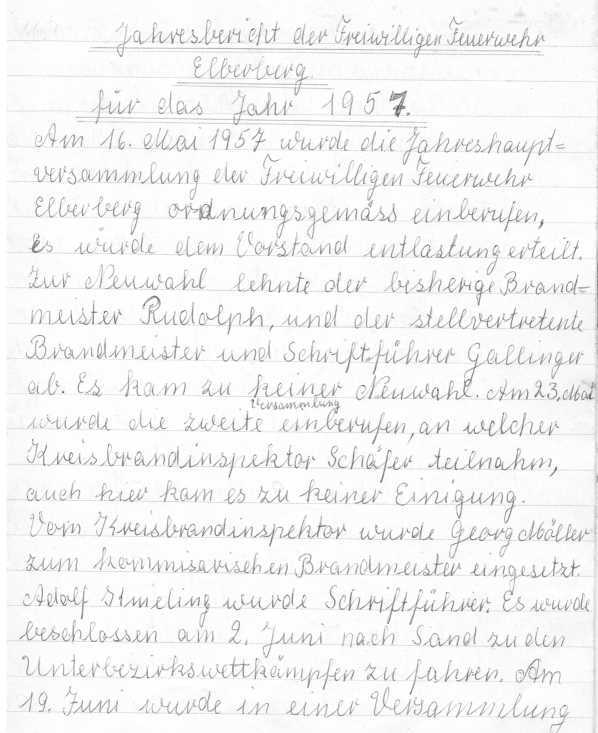 Jahresbericht der Freiwilligen Feuerwehr
Elberberg
für das Jahr 1957.
Am 16. Mai 1957 wurde die Jahreshaupt=
versammlung der Freiwilligen Feuerwehr
Elberberg ordnungsgemäss einberufen,
es wurde dem Vorstand entlastung erteilt.
Zur Neuwahl lehnte der bisherige Brand=
meister Rudolph, und der stellvertretente
Brandmeister und Schriftführer Gallinger
ab. Es kam zu keiner Neuwahl. Am 23. Mai
Versammlung
wurde die zweite einberufen, an welcher
Kreisbrandinspektor Schäfer teilnahm,
auch hier kam es zu keiner Einigung.
Vom Kreisbrandinspektor wurde Georg Möller
zum kommisarischen Brandmeister eingesetzt.
Adolf wurde Schriftführer. Es wurde
beschlossen am 2. Juni nach Sand zu den
Unterbezirkswettkämpfen zu fahren. Am
19. Juni wurde in einer Versammlung